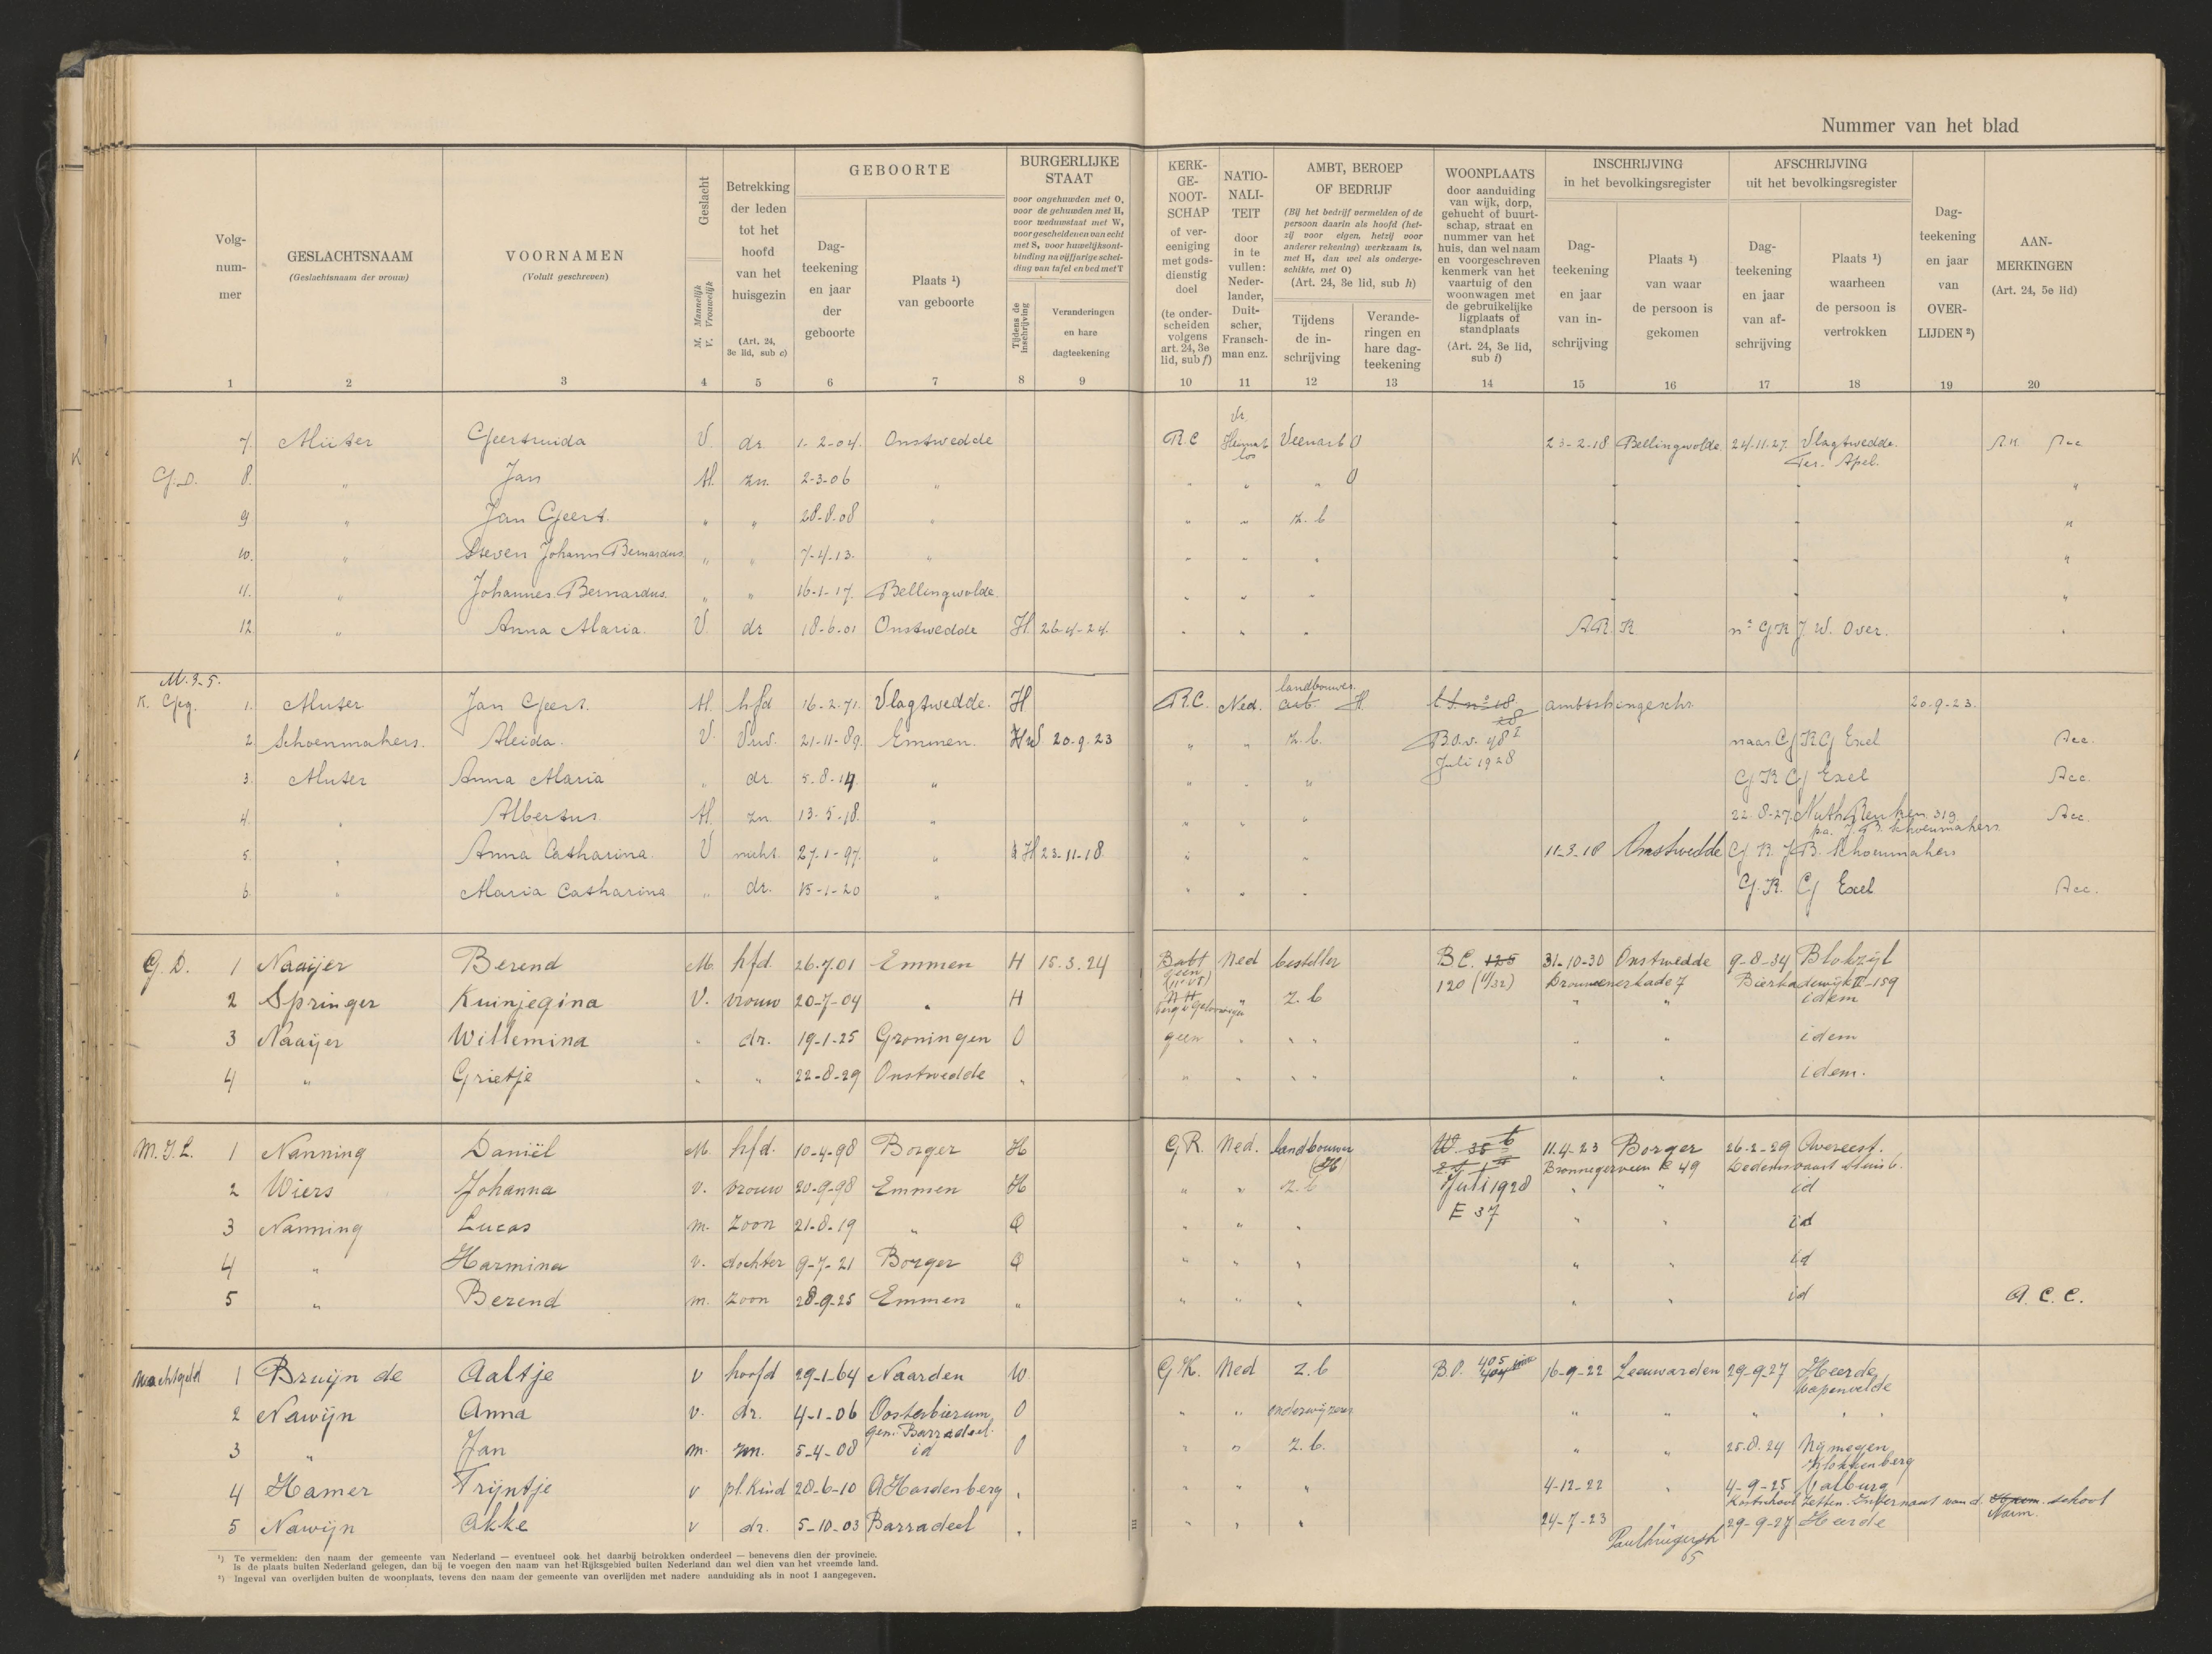 Nummer van het blad
Volg-
num-
mer
1
GESLACHTSNAAM
(Geslachtsnaam der vrouw)
2
VOORNAMEN
(Voluit geschreven)
3
Geslacht
M. Mannelijk
V. Vrouwelijk
4
Betrekking
der leden
tot het
hoofd
van het
huisgezin
(Art. 24,
3e lid, sub c)
5
GEBOORTE
Dag-
teekening
en jaar
der
geboorte
6
Plaats ¹)
van geboorte
7
BURGERLIJKE
STAAT
voor ongehuwden met O,
voor de gehuwden met H,
voor weduwstaat met W,
voor gescheidenen van echt
met S, voor huwelijksont-
binding na vijfjarige schei-
ding van tafel en bed met T
Tijdens de
inschrijving
8
Veranderingen
en hare
dagteekening
9
KERK-
GE-
NOOT-
SCHAP
of ver-
eeniging
met gods-
dienstig
doel
(te onder-
scheiden
volgens
art. 24, 3e
lid, sub f)
10
NATIO-
NALI-
TEIT
door
in te
vullen:
Neder-
lander,
Duit-
scher,
Fransch-
man enz.
11
AMBT, BEROEP
OF BEDRIJF
(Bij het bedrijf vermelden of de
persoon daarin als hoofd (het-
zij voor eigen, hetzij voor
anderer rekening) werkzaam is,
met H, dan wel als onderge-
schikte, met O)
(Art. 24, 3e lid, sub h)
Tijdens
de in-
schrijving
12
Verande-
ringen en
hare dag-
teekening
13
WOONPLAATS
door aanduiding
van wijk, dorp,
gehucht of buurt-
schap, straat en
nummer van het
huis, dan wel naam
en voorgeschreven
kenmerk van het
vaartuig of den
woonwagen met
de gebruikelijke
ligplaats of
standplaats
(Art. 24, 3e lid,
sub i)
14
INSCHRIJVING
in het bevolkingsregister
Dag-
teekening
en jaar
van in-
schrijving
15
Plaats ¹)
van waar
de persoon is
gekomen
16
AFSCHRIJVING
uit het bevolkingsregister
Dag-
teekening
en jaar
van af-
schrijving
17
Plaats ¹)
waarheen
de persoon is
vertrokken
18
Dag-
teekening
en jaar
van
OVER-
LIJDEN ²)
19
AAN-
MERKINGEN
(Art. 24, 5e lid)
20
7 Muter Geertruida V. dr 1-2-04. Onstwedde R.C Veenarb O 23-2-18 Bellingwolde 24-11-27. Vlagtwedde.
Ter. Apel.
G.D. 8. " Jan M. zn. 2-3-06 " " " " O
9 " Jan Geert. " " 28-8-08 " " " z.b
10. " Steven Johann Bernardus " " 7-4-13. " " " "
11. " Johannes Bernardus. " " 16-1-17. Bellingwolde. " " "
12 " Anna Maria. V. dr 18-6-01 Onstwedde H. 26-4-24. " " " J. W. Over.
M.9-5.
landbouwer
1. Muter Jan Geert. M. hfd 16-2-71. Vlagtwedde. H R.C. Ned. arb. H. ambtsh ingeschr. 20-9-23.
2 Schoenmakers. Aleida. V. Vrw. 21-11-89. Emmen. H W 20-9-23 " " z.b. naar G K G Exel Acc.
Juli 1928
3. Muter Anna Maria " dr. 5-8-14. " " " " G K G Exel Acc.
4. " Albertus M. zn 13-5-18. " " " " 22-8-27. Acc.
pa. J. B. Schoenmakers
5. " Anna Catharina. V nicht. 27-1-97. " H 23-11-18. " " 11-3-18 Onstwedde G K J B. Schoenmakers
6 " Maria Catharina " dr. 15-1-20 " " " " G. K. G Exel Acc.
G. D. 1 Naaijer Berend M. hfd. 26-7-01 Emmen H 15.3.24 Ned besteller B C. 125 31-10-30 Onstwedde 9-8-34 Blokzijl
geen 120 (11/32) Drouwenerkade 7 Bierkadewijk II-159
2 Springer Kuinjegina V. vrouw 20-7-04 " H N H " z. b " " idem
3 Naaijer Willemina " dr. 19-1-25 Groningen O geen " " " " " idem
4 " Grietje " " 22-8-29 Onstwedde " " " " " " " idem.
M.J.L. 1 Nanning Daniël M. hfd. 10-4-98 Borger H G R. Ned. landbouwer 11-4-23 Borger 26-2-29 Avereest.
(H) Bronnegerveen k 49 Dedemsvaart sluis 6.
2 Wiers Johanna v. vrouw 20-9-98 Emmen H " " z.b Juli 1928 " " id
3 Nanning Lucas m. zoon 21-8-19 " O " " " E 37 " " id
4 " Harmina v. dochter 9-7-21 Borger O " " " " " id
5 " Berend m. zoon 28-9-25 Emmen " " " " " " id A. C. C.
Wachtgeld 1 Bruijn de Aaltje v hoofd 29-1-64 Naarden W G K. Ned z.b B.O. 405 16-9-22 Leeuwarden 29-9-27 Heerde
Wapenvelde
2 Nawijn Anna v. dr. 4-1-06 Oosterbierum O " " onderwijzeres " " " "
gem. Barradeel.
3 " Jan m. zn. 5-4-08 id O " " z.b. " " 25.8.24 Nijmegen
Klokkenberg
4 Hamer Trijntje v pl. kind 28-6-10 A Hardenberg " " " " 4-12-22 " 4-9-25 Valburg
Kostschool Zetten. Internaat van d. school
Norm.
5 Nawijn Akke v dr. 5-10-03 Barradeel " " " " 24-7-23 29-9-27 Heerde
¹) Te vermelden: den naam der gemeente van Nederland — eventueel ook het daarbij betrokken onderdeel — benevens dien der provincie.
Is de plaats buiten Nederland gelegen, dan bij te voegen den naam van het Rijksgebied buiten Nederland dan wel dien van het vreemde land.
²) Ingeval van overlijden buiten de woonplaats, tevens den naam der gemeente van overlijden met nadere aanduiding als in noot 1 aangegeven.